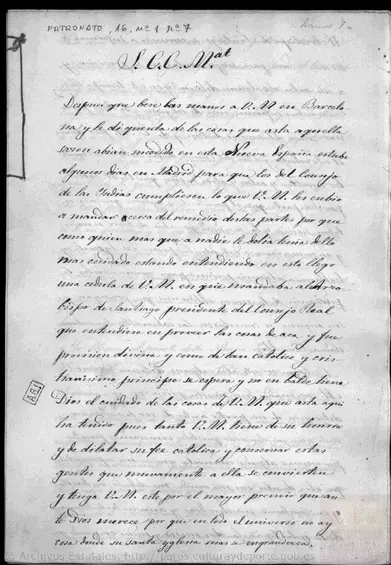 PATRONATO, 16, nº 1 rº 7
S. C. C. Mat
Despues que bese las manos a V. M. en Barcelo
na y le di quenta de las cosas que asta aquella
sazon abian sucedido en esta Nueva España estube
algunos dias en Madrid para que los del Consejo
de las Yndias cumpliesen lo que V. M. les enbio
a mandar acerca del remedio destas partes por que
como quien mas que a nadie le dolia tenia dello
mas cuidado estando entendiendo en esto llego
una cedula de V. M. en que mandaba al Arzo
bispo de Santiago presidente del Consejo Real
que entendiese en proveer las cosas de aca y fue
provision divina y como de tan catolico y cris
tianisimo principe se espera y no en balde tiene
Dios el cuidado de las cosas de V. M. que asta aqui
ha tenido pues tanto V. M. tiene de su honrra
y de dilatar su fee catolica y conservar estas
gentes que nuevamente a ella se convierten
y tenga V. M. este por el mayor premio que an
te Dios merece por que en todo el universo no ay
cosa donde su santa yglesia mas se engrandezca.
AGI
© Archivos Estatales, http://pares.culturaydeporte.gob.es